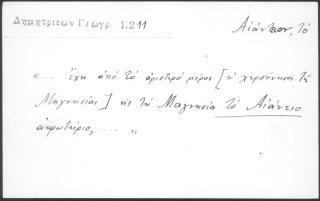 Δημητριεων Γεωγρ. 1.211
Αἰάντειον, τό
“... ἔχει ἀπό τό ἀριστερό μέρος [ἡ χερσόνησος τῆς
Μαγνησίας] εἰς τή Μαγνησία τό Αἰάντιο
ἀκρωτήριο, .... „